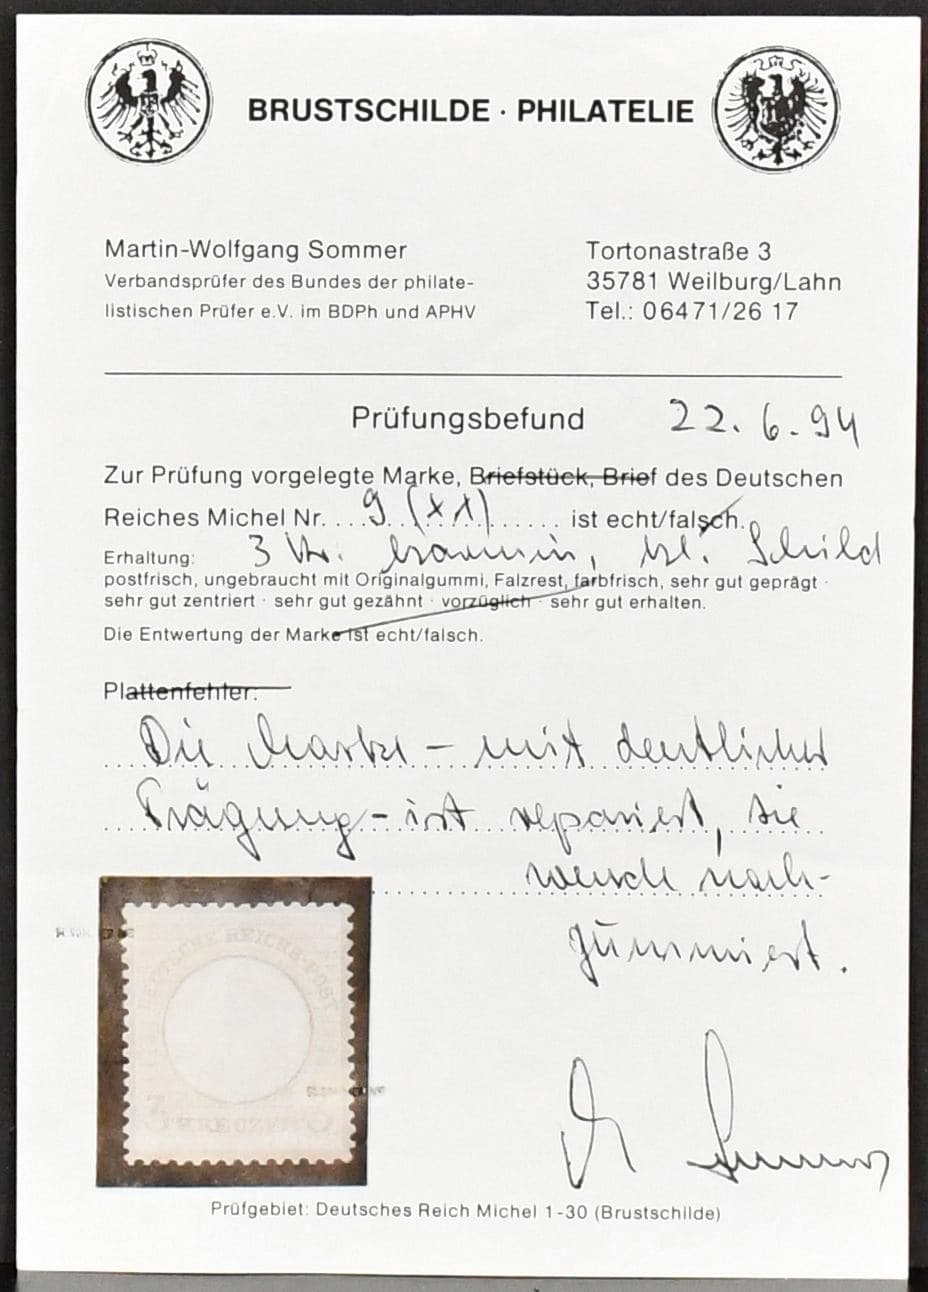 BRUSTSCHILDE · PHILATELIE
Martin-Wolfgang Sommer
Verbandsprüfer des Bundes der philate-
listischen Prüfer e.V. im BDPh und APHV
Tortonastraße 3
35781 Weilburg/Lahn
Tel.: 06471/26 17
Prüfungsbefund 22.6.94
Zur Prüfung vorgelegte Marke, Briefstück, Brief des Deutschen
Reiches Michel Nr. . . . . 9 (xx) . . . . . . ist echt/falsch.
Erhaltung: 3 Kr. karmin, kl. Schild
postfrisch, ungebraucht mit Originalgummi, Falzrest, farbfrisch, sehr gut geprägt ·
sehr gut zentriert · sehr gut gezähnt · vorzüglich · sehr gut erhalten.
Die Entwertung der Marke ist echt/falsch.
Plattenfehler:
Die Marke – mit deutlicher
Prägung – ist repariert, sie
wurde nach-
gummiert.
DEUTSCHE REICHS-POST
KREUZER
Sommer
Prüfgebiet: Deutsches Reich Michel 1-30 (Brustschilde)